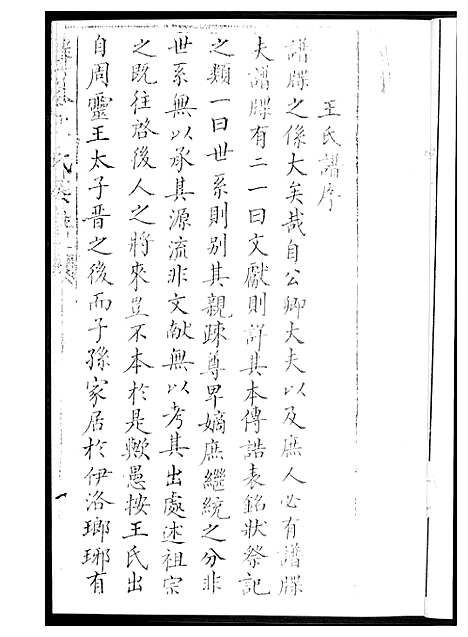 王氏譜序
譜牒之係大矣哉自公卿大夫以及庶人必有譜牒
夫譜牒有二一曰文獻則詳其本傳誥表銘狀祭記
之類一曰世系則別其親疎尊卑嫡庶繼統之分非
世系無以承其源流非文献無以考其出處述祖宗
之既往啓後人之將來豈不本於是歟愚按王氏出
自周靈王太子晋之後而子孫家居於伊洛瑯琊有